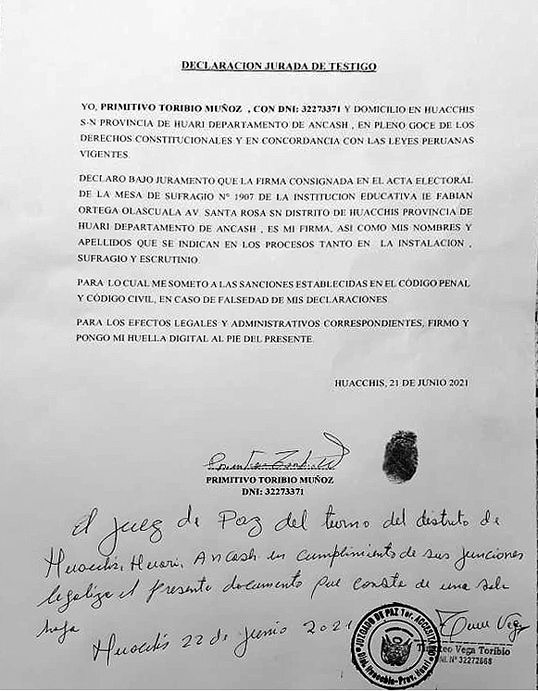 DECLARACION JURADA DE TESTIGO
YO, PRIMITIVO TORIBIO MUÑOZ , CON DNI: 32273371 Y DOMICILIO EN HUACCHIS
S-N PROVINCIA DE HUARI DEPARTAMENTO DE ANCASH , EN PLENO GOCE DE LOS
DERECHOS CONSTITUCIONALES Y EN CONCORDANCIA CON LAS LEYES PERUANAS
VIGENTES.
DECLARO BAJO JURAMENTO QUE LA FIRMA CONSIGNADA EN EL ACTA ELECTORAL
DE LA MESA DE SUFRAGIO N° 1907 DE LA INSTITUCION EDUCATIVA IE FABIAN
ORTEGA OLASCUALA AV. SANTA ROSA SN DISTRITO DE HUACCHIS PROVINCIA DE
HUARI DEPARTAMENTO DE ANCASH , ES MI FIRMA, ASI COMO MIS NOMBRES Y
APELLIDOS QUE SE INDICAN EN LOS PROCESOS TANTO EN LA INSTALACION ,
SUFRAGIO Y ESCRUTINIO.
PARA LO CUAL ME SOMETO A LAS SANCIONES ESTABLECIDAS EN EL CÓDIGO PENAL
Y CÓDIGO CIVIL, EN CASO DE FALSEDAD DE MIS DECLARACIONES.
PARA LOS EFECTOS LEGALES Y ADMINISTRATIVOS CORRESPONDIENTES, FIRMO Y
PONGO MI HUELLA DIGITAL AL PIE DEL PRESENTE.
HUACCHIS, 21 DE JUNIO 2021
PRIMITIVO TORIBIO MUÑOZ
DNI: 32273371
El juez de Paz del turno del distrito de
Huacchis, Huari, Ancash en cumplimiento de sus funciones
legaliza el presente documento que consta de una sola
hoja
Huacchis 22 de junio 2021
JUZGADO DE PAZ 1er.
Huacchis-Prov. Huari
Vega Toribio
N° 32272668